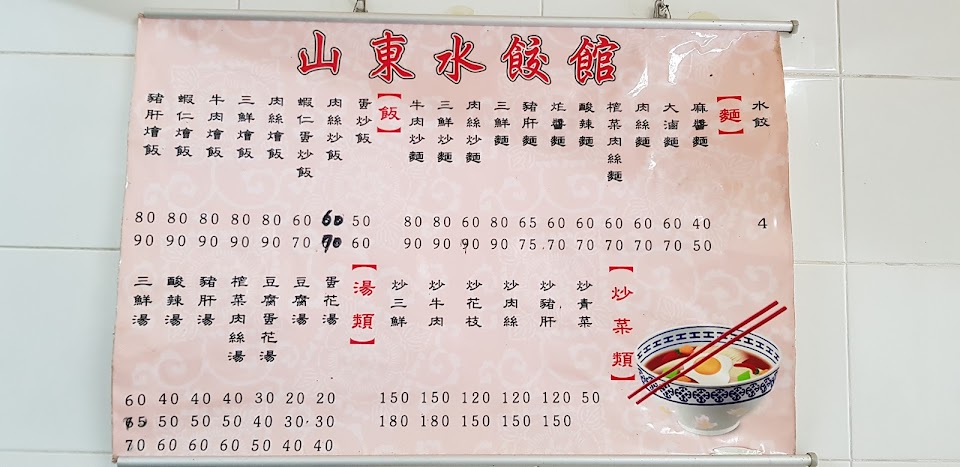 山東水餃館
水餃
【麵】
麻醬麵
大滷麵
肉絲麵
榨菜肉絲麵
酸辣麵
炸醬麵
豬肝麵
三鮮麵
肉絲炒麵
三鮮炒麵
牛肉炒麵
【飯】
蛋炒飯
肉絲炒飯
蝦仁蛋炒飯
肉絲燴飯
三鮮燴飯
牛肉燴飯
蝦仁燴飯
豬肝燴飯
80 80 80 80 80 60 60 50 80 80 60 80 65 60 60 60 60 60 40 4
90 90 90 90 90 70 70 60 90 90 90 90 75 70 70 70 70 70 50
【炒菜類】
炒青菜
炒豬肝
炒肉絲
炒花枝
炒牛肉
炒三鮮
【湯類】
蛋花湯
豆腐湯
豆腐蛋花湯
榨菜肉絲湯
豬肝湯
酸辣湯
三鮮湯
60 40 40 40 30 20 20 150 150 120 120 120 50
65 50 50 50 40 30 30 180 180 150 150 150
70 60 60 60 50 40 40